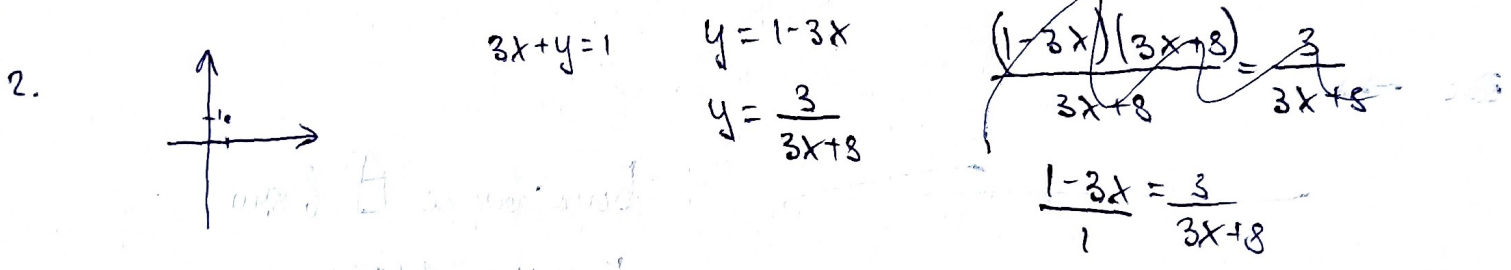 2.
1
3x+y=1
y = 1-3x
y = 3/(3x+8)
(1-3x)(3x+8)/(3x+8) = 3/(3x+8)
(1-3x)/1 = 3/(3x+8)